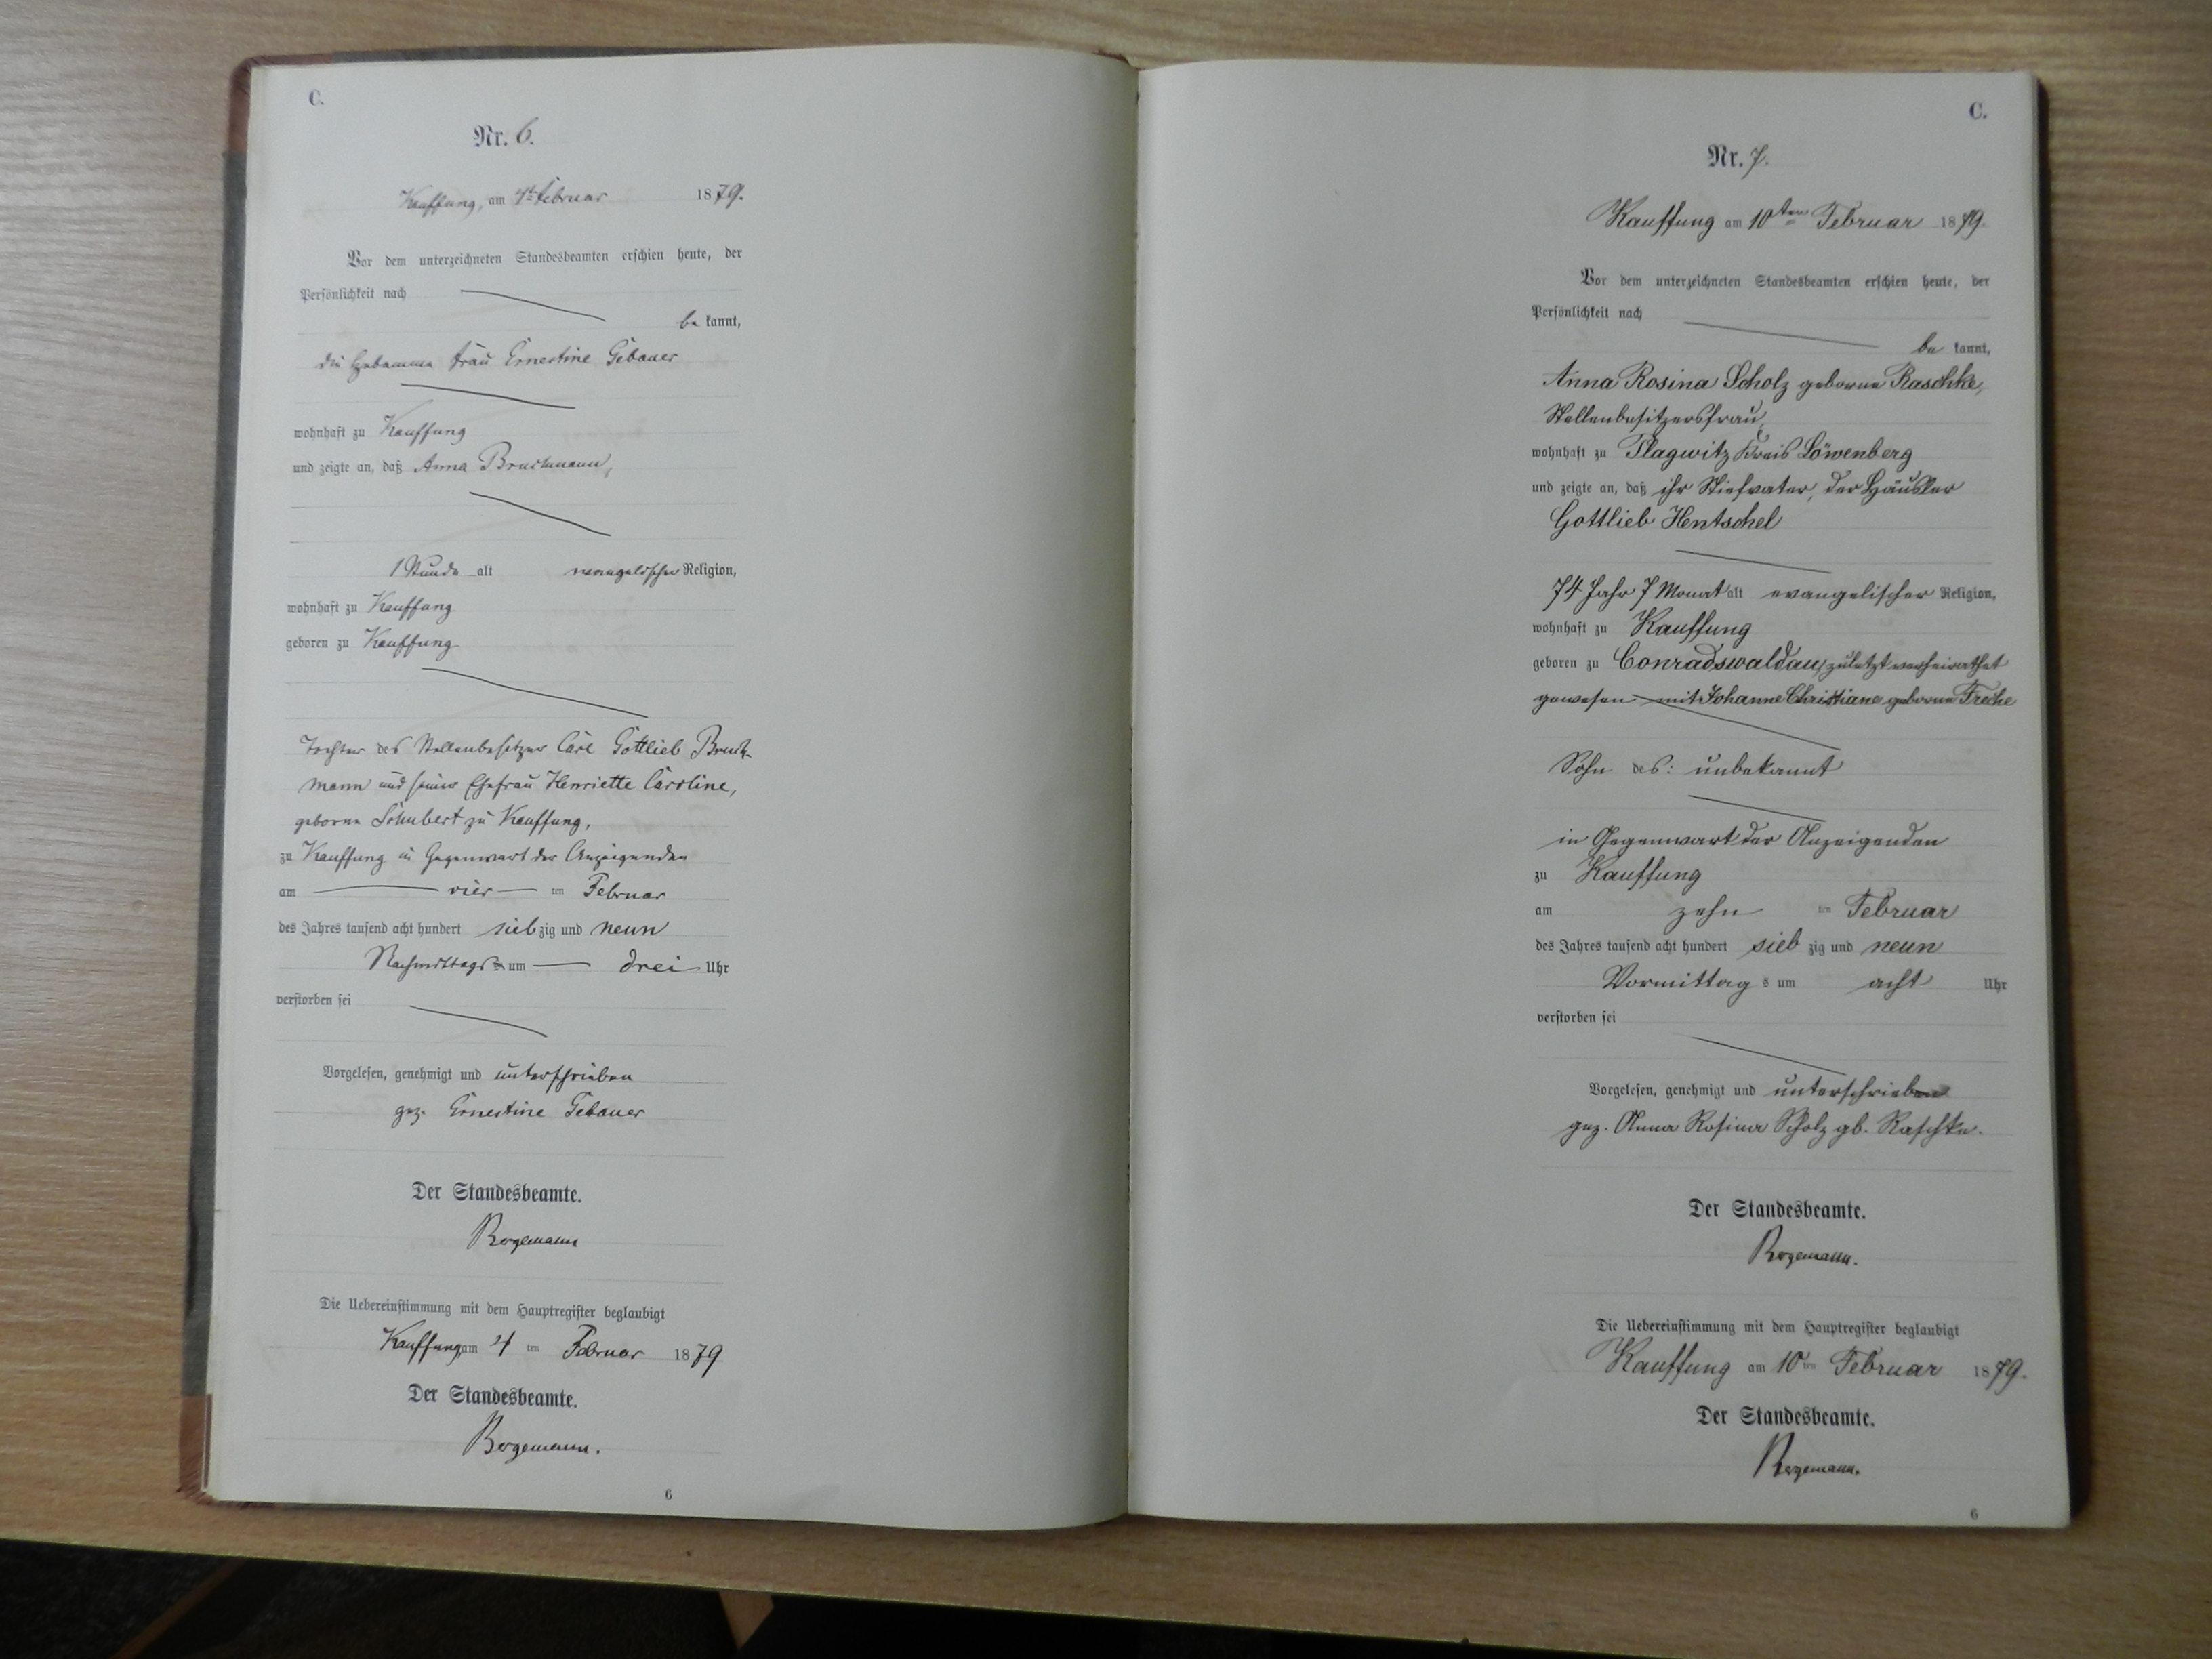 C.
Nr. 6.
Kauffung, am 4ten Februar 1879.
Vor dem unterzeichneten Standesbeamten erschien heute, der
Persönlichkeit nach
be kannt,
die Hebamme Frau Ernestine Gebauer
wohnhaft zu Kauffung
und zeigte an, daß Anna Bruchmann,
1 Stunde alt evangelischer Religion,
wohnhaft zu Kauffung
geboren zu Kauffung
Tochter des Stellenbesitzer Carl Gottlieb Bruch-
mann und seiner Ehefrau Henriette Caroline,
geborne Schubert zu Kauffung,
zu Kauffung in Gegenwart der Anzeigenden
am vier ten Februar
des Jahres tausend acht hundert siebzig und neun
Nachmittags um drei Uhr
verstorben sei
Vorgelesen, genehmigt und unterschrieben
gez. Ernestine Gebauer
Der Standesbeamte.
Bergemann
Die Uebereinstimmung mit dem Hauptregister beglaubigt
Kauffung am 4 ten Februar 1879
Der Standesbeamte.
Bergemann.
6
C.
Nr. 7.
Kauffung am 10ten Februar 1879.
Vor dem unterzeichneten Standesbeamten erschien heute, der
Persönlichkeit nach
be kannt,
Anna Rosina Scholz geborne Raschke,
Stellenbesitzersfrau,
wohnhaft zu Plagwitz Kreis Löwenberg
und zeigte an, daß ihr Stiefvater, der Häusler
Gottlieb Hentschel
74 Jahr 7 Monat alt evangelischer Religion,
wohnhaft zu Kauffung
geboren zu Conradswaldau, zuletzt verheirathet
gewesen mit Johanne Christiane geborne Freche
Sohn des: unbekannt
in Gegenwart der Anzeigenden
zu Kauffung
am zehn ten Februar
des Jahres tausend acht hundert sieb zig und neun
Vormittag s um acht Uhr
verstorben sei
Vorgelesen, genehmigt und unterschrieben
gez. Anna Rosina Scholz gb. Raschke.
Der Standesbeamte.
Bergemann.
Die Uebereinstimmung mit dem Hauptregister beglaubigt
Kauffung am 10 ten Februar 1879.
Der Standesbeamte.
Bergemann.
6